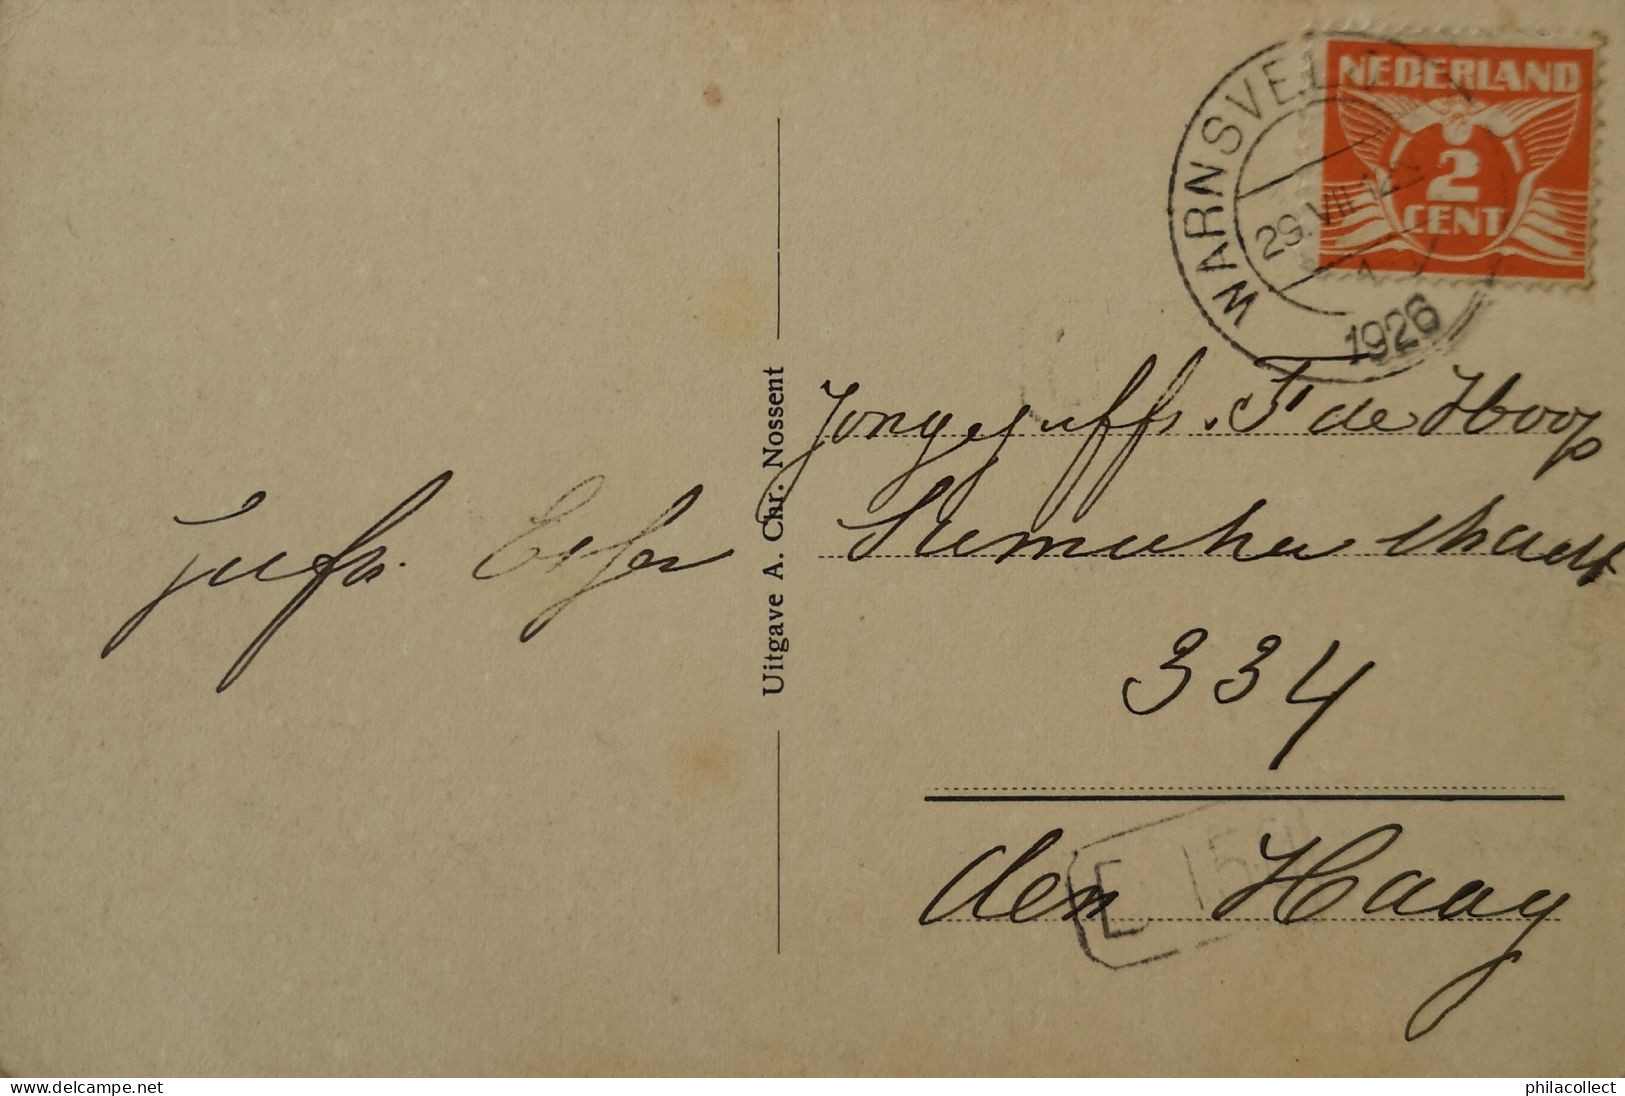 NEDERLAND
2
CENT
WARNSVELD
29.VII.12
1926
Jongejuffr. T de Hoop
334
den Haag
E 159
Jufr.
Uitgave A. Chr. Nossent
www.delcampe.net
philacollect